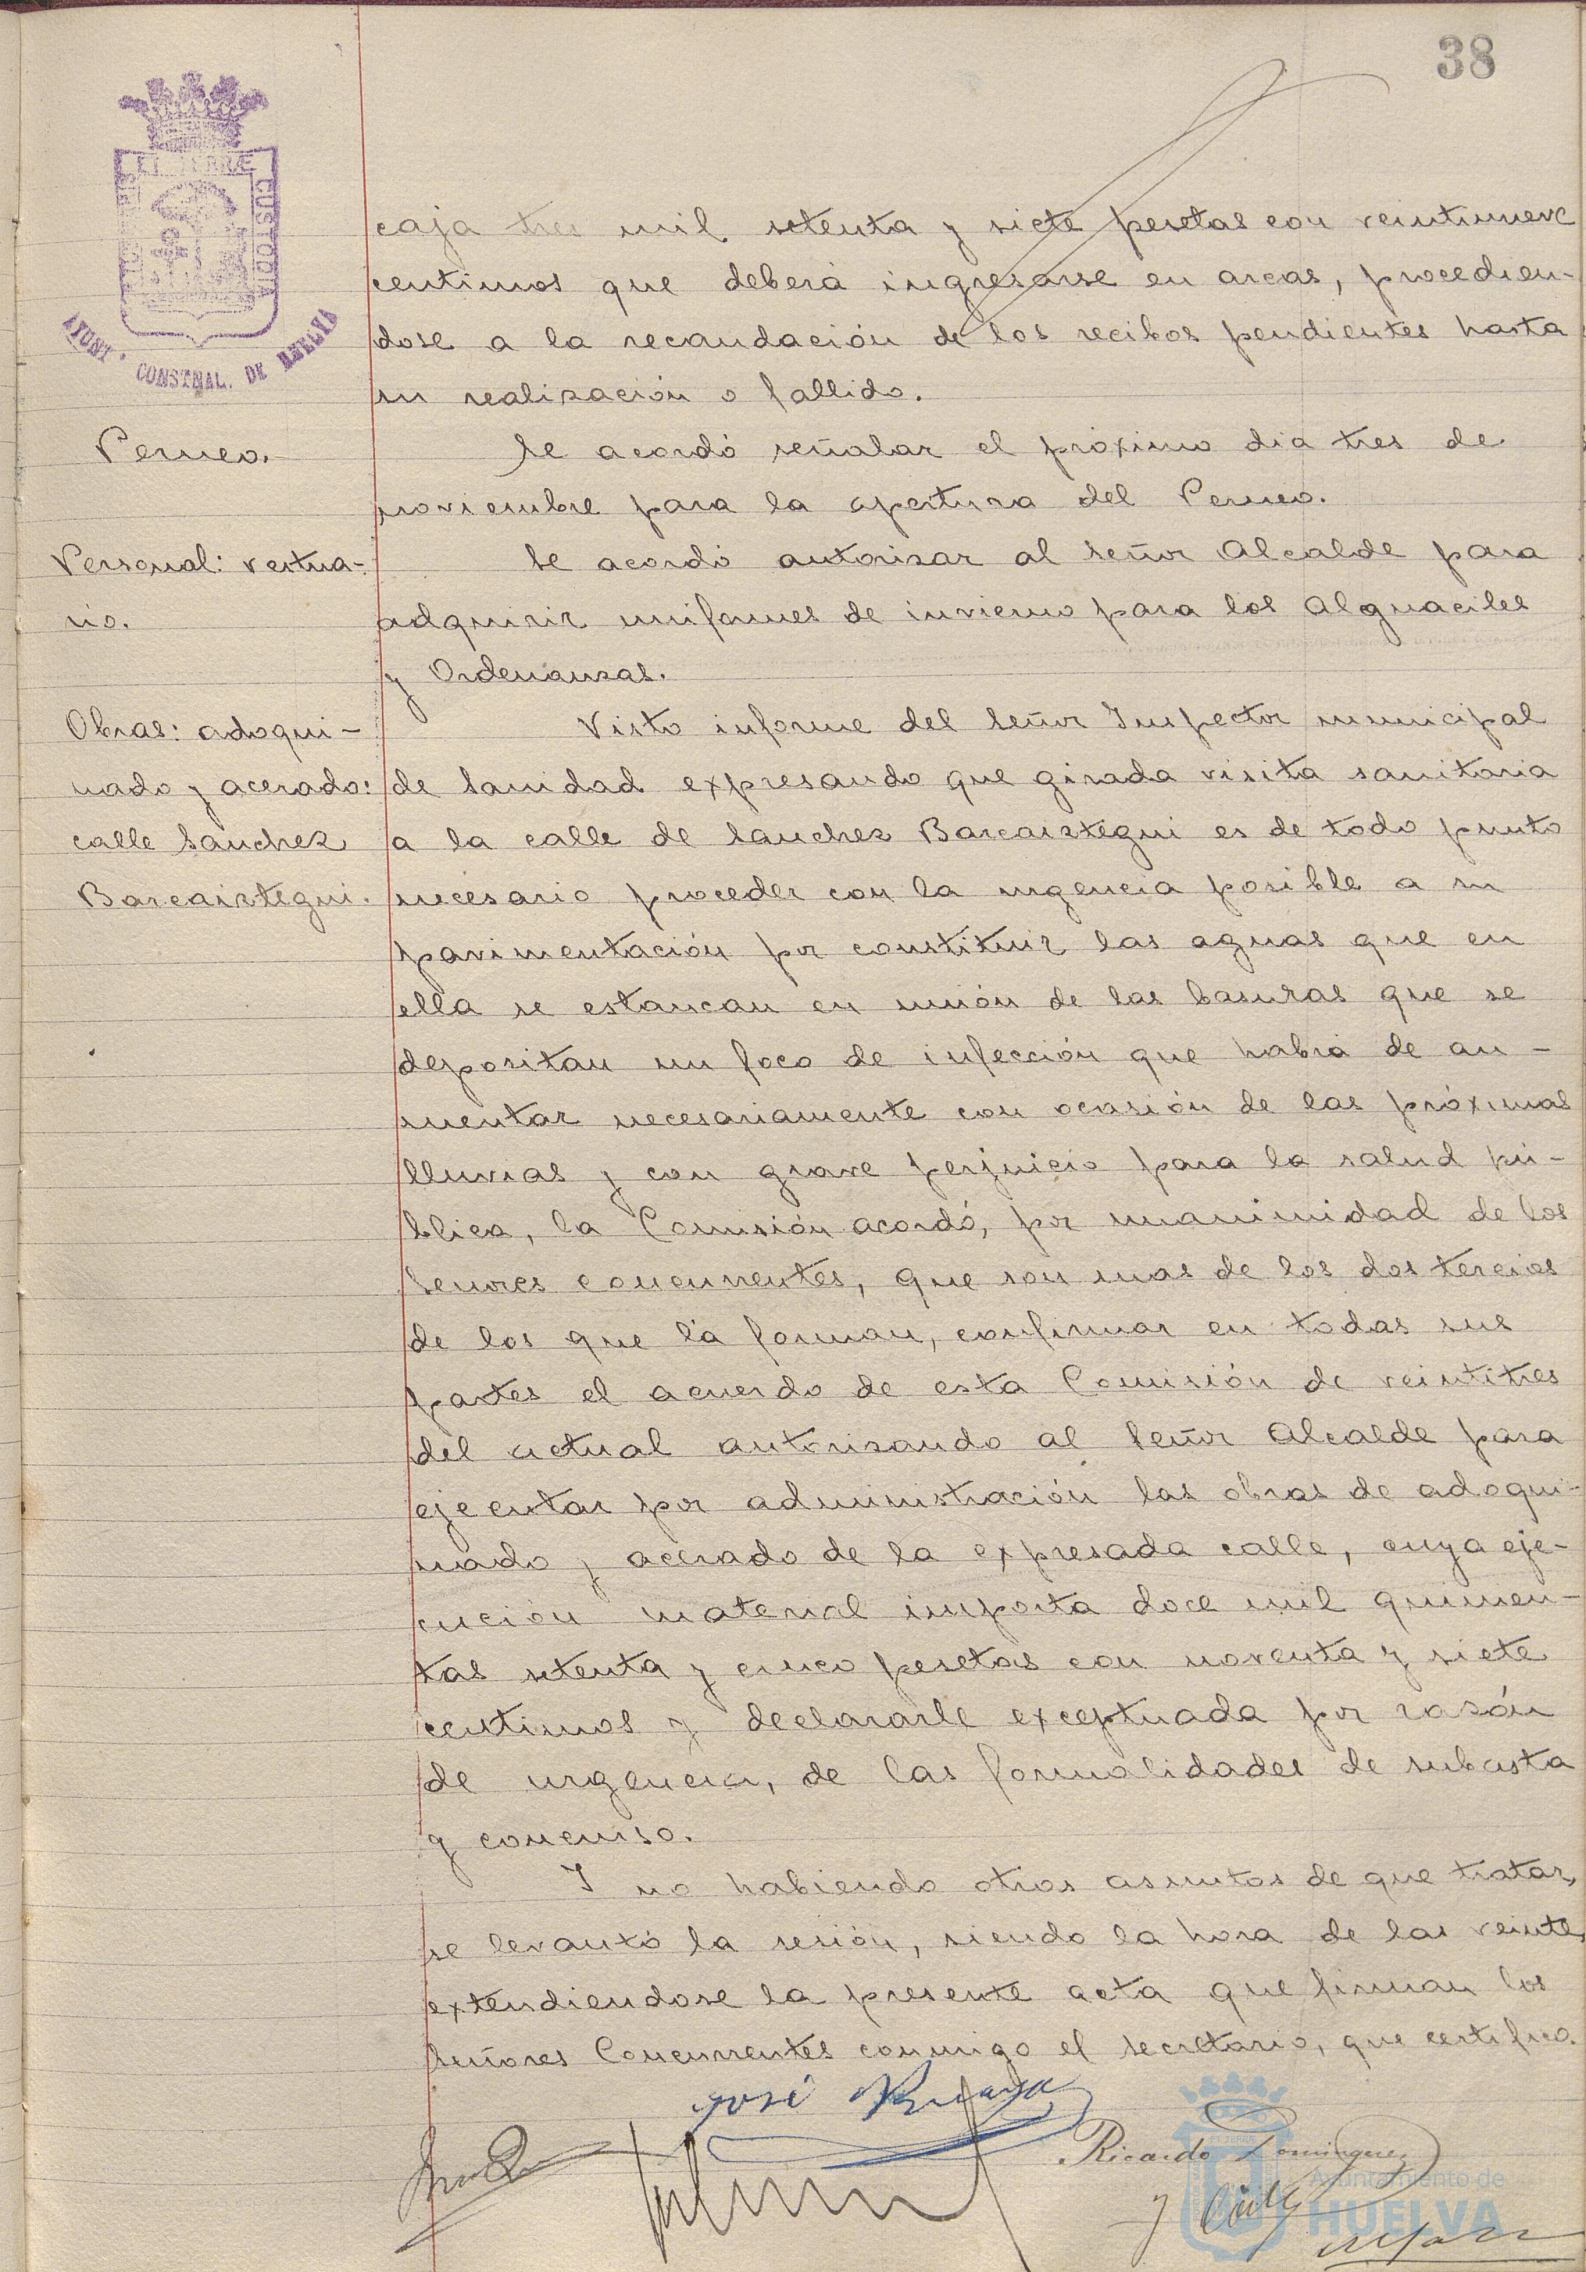 38
ET TERRÆ CUSTODIA
AYUNT. CONSTNAL. DE HUELVA
caja tres mil setenta y siete pesetas con veintinueve
centimos que deberá ingresarse en arcas, procedien-
dose a la recaudación de los recibos pendientes hasta
su realización o fallido.
Perneo.
Se acordó señalar el próximo dia tres de
noviembre para la apertura del Perneo.
Personal: vestua-
rio.
Se acordó autorizar al Señor Alcalde para
adquirir uniformes de invierno para los Alguaciles
y Ordenanzas.
Obras: adoqui-
nado y acerado:
calle Sanchez
Barcaiztegui.
Visto informe del Señor Inspector municipal
de Sanidad expresando que girada visita sanitaria
a la calle de Sanchez Barcaiztegui es de todo punto
necesario proceder con la urgencia posible a su
pavimentación por constituir las aguas que en
ella se estancan en unión de las basuras que se
depositan un foco de infección que habrá de au-
mentar necesariamente con ocasión de las próximas
lluvias y con grave perjuicio para la salud pú-
blica, la Comisión acordó, por unanimidad de los
Señores concurrentes, que son mas de los dos tercios
de los que la forman, confirmar en todas sus
partes el acuerdo de esta Comisión de veintitres
del actual autorizando al Señor Alcalde para
ejecutar por administración las obras de adoqui-
nado y acerado de la expresada calle, cuya eje-
cución material importa doce mil quinien-
tas setenta y cinco pesetas con noventa y siete
centimos y declararle exceptuada por razón
de urgencia, de las formalidades de subasta
y concurso.
Y no habiendo otros asuntos de que tratar,
se levantó la sesión, siendo la hora de las veinte,
extendiendose la presente acta que firman los
Señores Concurrentes conmigo el Secretario, que certifico.
José
Ricardo Dominguez
Ayuntamiento de
HUELVA